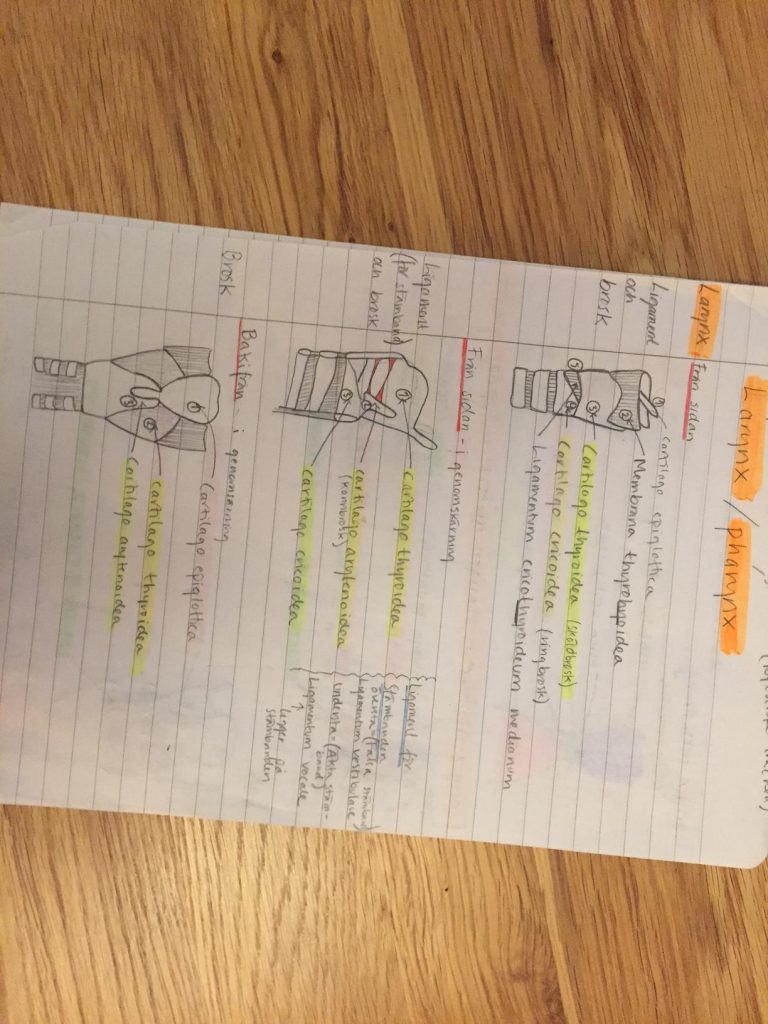 Larynx / pharynx
Larynx, Från sidan
Ligament
och
brosk
① cartilago epiglottica
② Membrana thyrohyoidea
③ Cartilago thyroidea (sköldbrosk)
④ Cartilago cricoidea (ringbrosk)
⑤ Ligamentum cricothyroideum medianum
Från sidan - i genomskärning
Ligament
(för stämband)
och brosk
① Cartilago thyroidea
② cartilago arytenoidea
(kannbrosk)
③ cartilago cricoidea
Ligament för
stämbanden
översta = (Falska stämband)
Ligamentum vestibulare
Understa = (Äkta stäm-
band)
Ligamentum vocale
↑
ligger på
stämbanden
Bakifrån i genomskärning
Brosk
① Cartilago epiglottica
② cartilago thyroidea
③ Cartilago arytenoidea